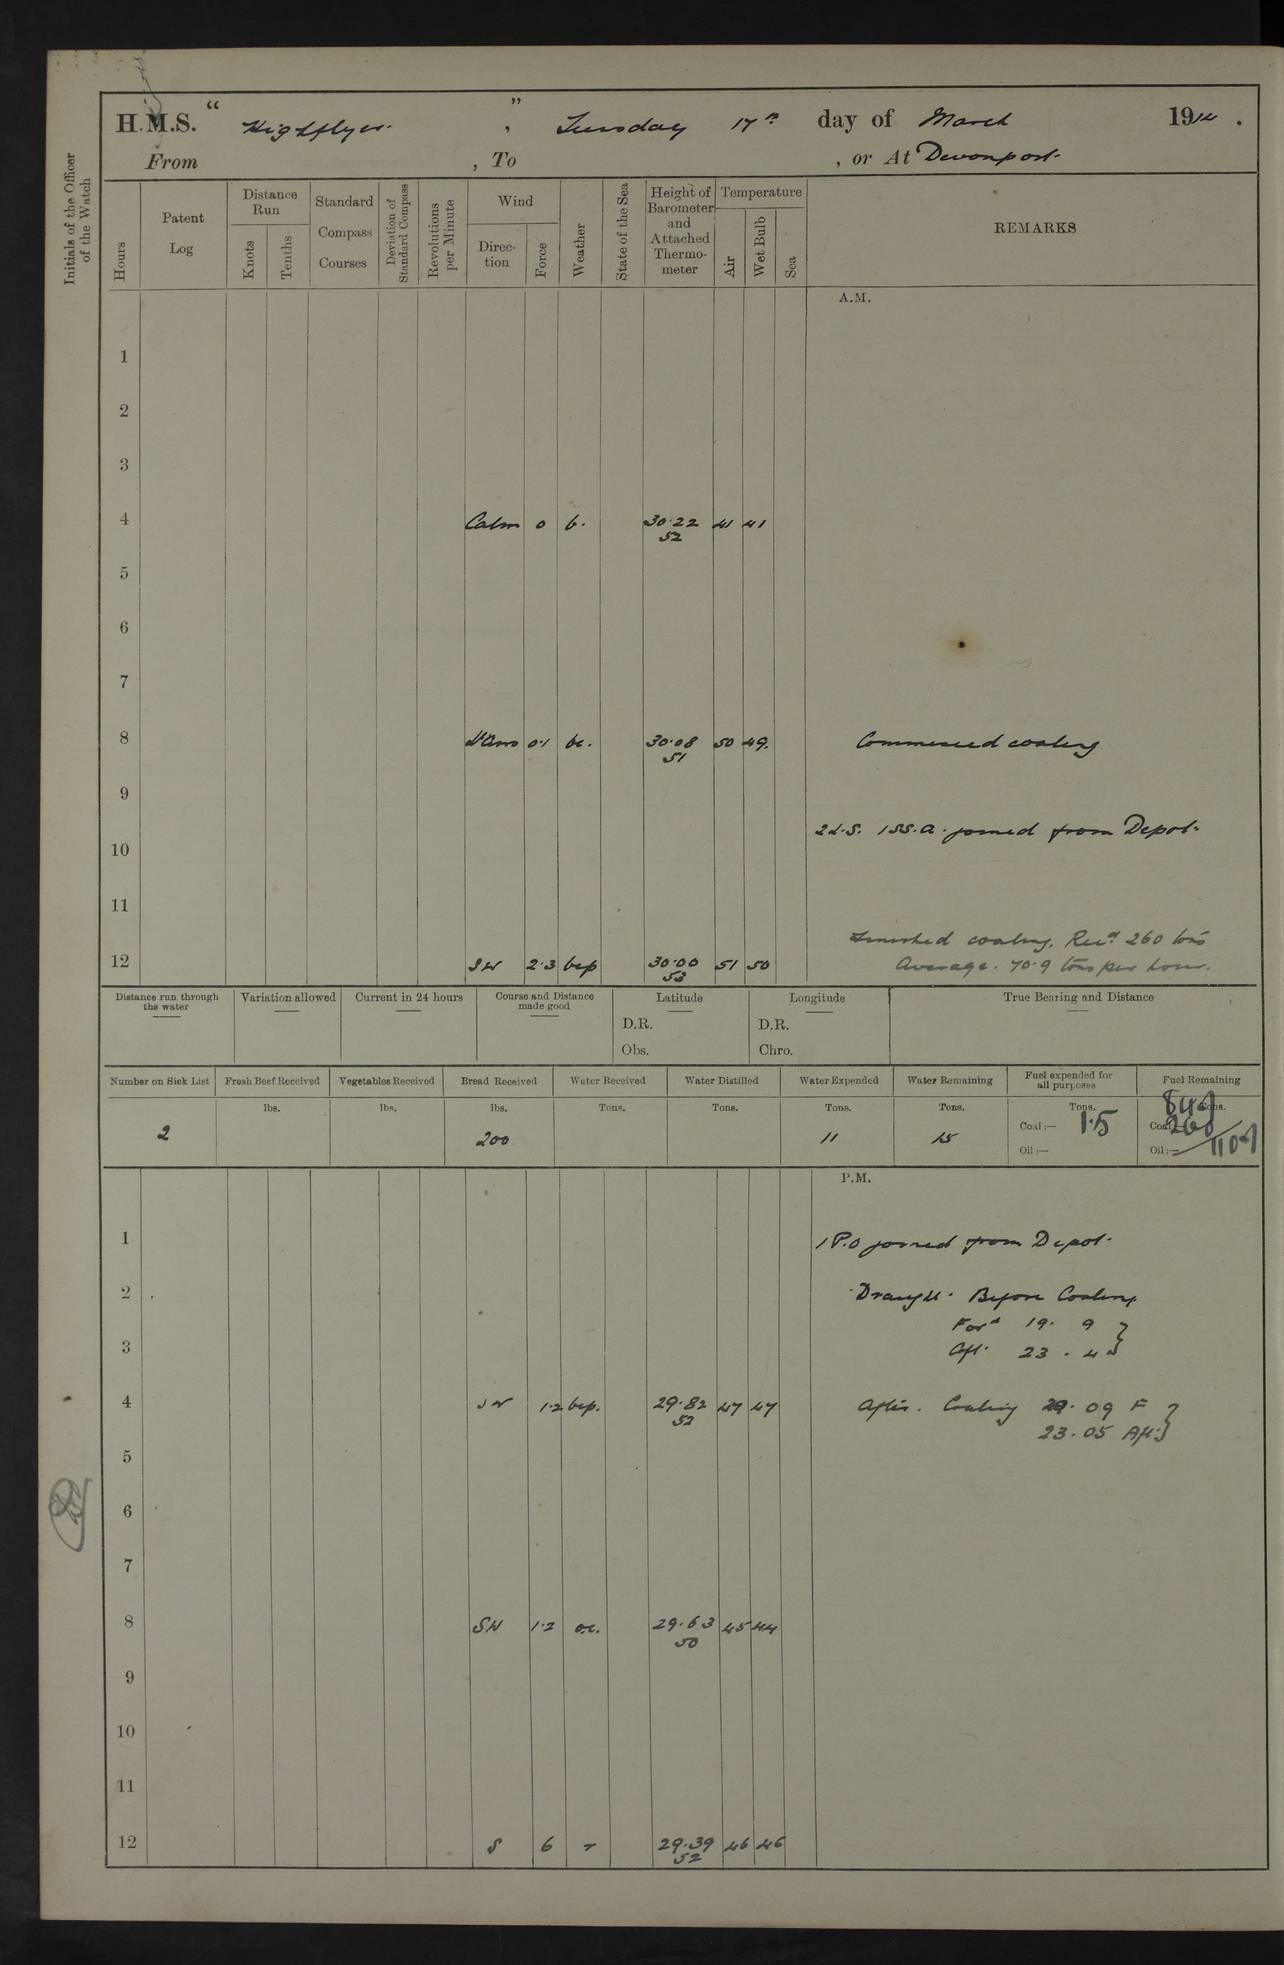 H.M.S. " Highflyer. ", Tuesday 17th day of March 1914.
From , To , or At Devonport.
Initials of the Officer of the Watch
Hours
Patent Log
Distance Run
Knots
Tenths
Standard Compass Courses
Deviation of Standard Compass
Revolutions per Minute
Wind
Direction
Force
Weather
State of the Sea
Height of Barometer and Attached Thermometer
Temperature
Air
Wet Bulb
Sea
REMARKS
A.M.
1
2
3
4 Calm 0 b. 30.22 41 41
52
5
6
7
8 0.1 bc. 30.08 50 49. Commenced coaling
51
9
2 L.S. 1 SS.A. joined from Depot.
10
11
Finished coaling. Recd 260 tons
12 SW 2.3 bcp 30.00 51 50 Average. 70.9 tons per hour.
53
Distance run through the water
Variation allowed
Current in 24 hours
Course and Distance made good
Latitude
D.R.
Obs.
Longitude
D.R.
Chro.
True Bearing and Distance
Number on Sick List
Fresh Beef Received
Vegetables Received
Bread Received
Water Received
Water Distilled
Water Expended
Water Remaining
Fuel expended for all purposes
Fuel Remaining
lbs. lbs. lbs. Tons. Tons. Tons. Tons. Tons. Tons.
2 200 11 15 Coal:— 15 Coal:— 260
Oil:— Oil:—
P.M.
1 1 P.O joined from Depot.
2 Draught. Before Coaling
Ford 19. 9
3 Aft. 23. 4
4 SW 1.2 bcp. 29.82 47 47 After. Coaling 09 F
52 23.05 Aft.
5
6
7
8 SW 1.2 oc. 29.63 45 44
50
9
10
11
12 S 6 r 29.39 46 46
52